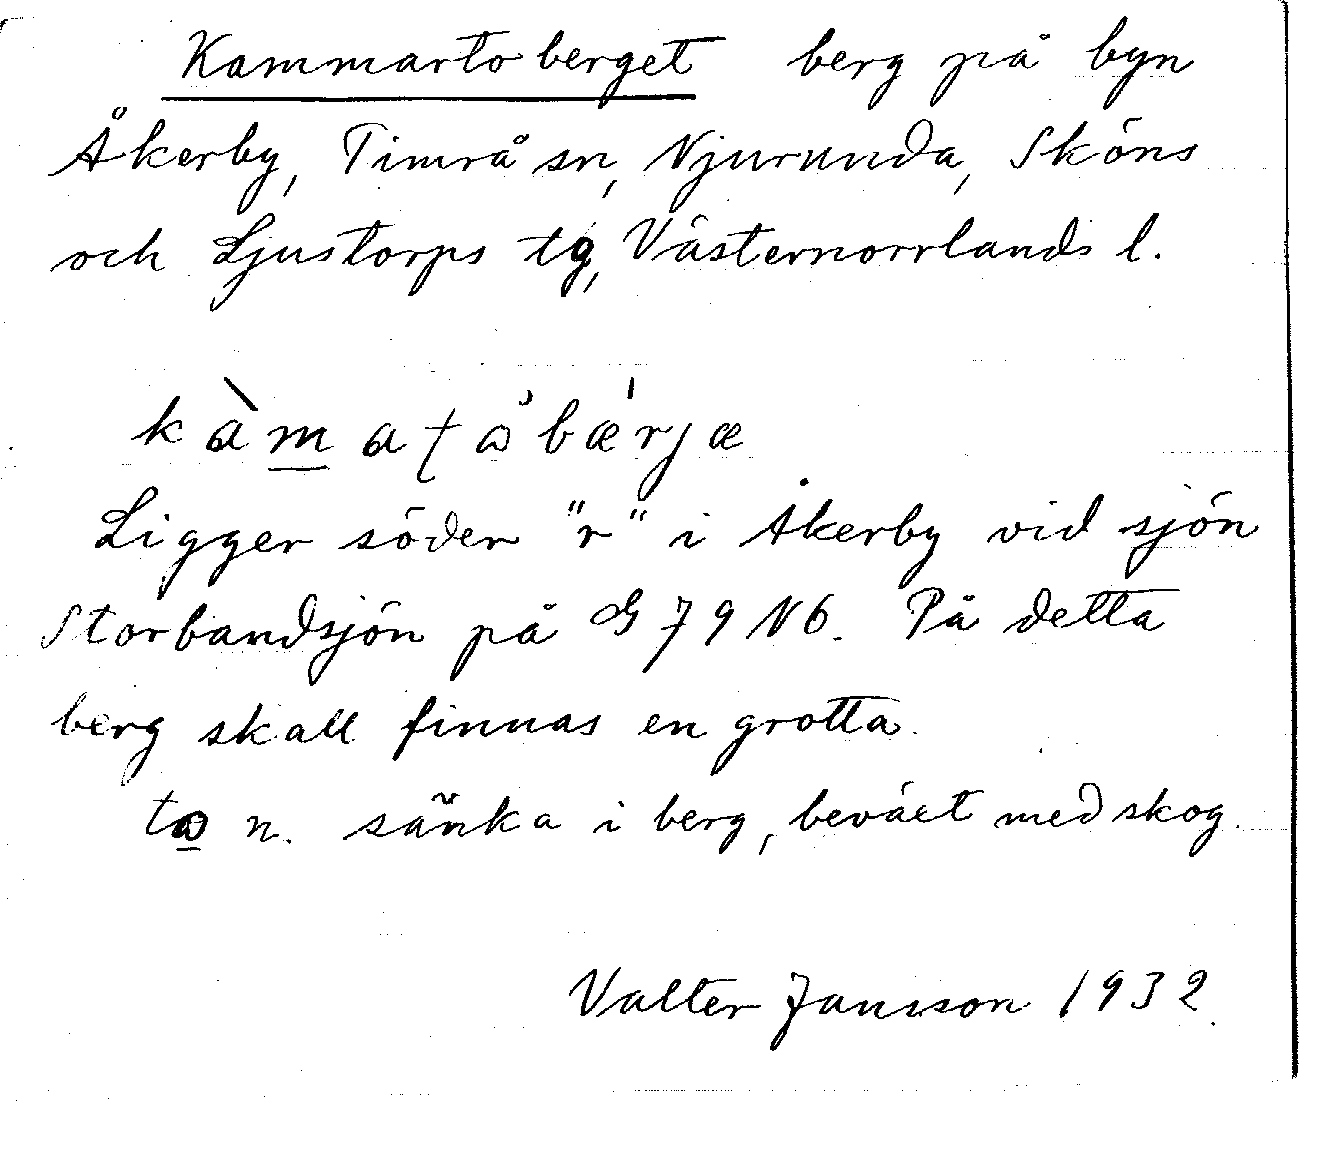 Kammartoberget berg på byn
Åkerby, Timrå sn, Njurunda, Sköns
och Ljustorps tg, Västernorrlands l.
kàmatåbǽrjæ
Ligger söder "r" i Åkerby vid sjön
Storbandsjön på G 79 N6. På detta
berg skall finnas en grotta.
to n. sänka i berg, beväxt med skog.
Valter Jansson 1932.